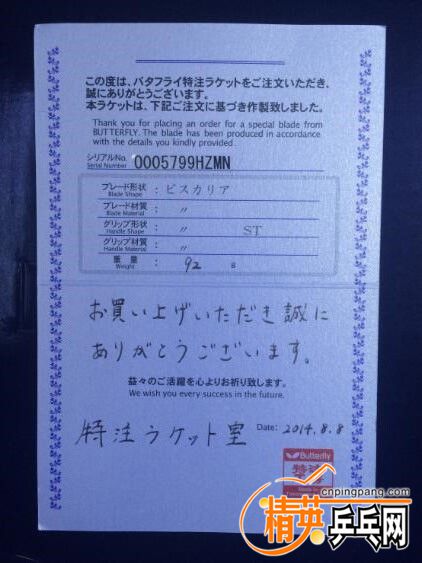 この度は、バタフライ特注ラケットをご注文いただき、
誠にありがとうございます。
本ラケットは、下記ご注文に基づき作製致しました。
Thank you for placing an order for a special blade from
BUTTERFLY. The blade has been produced in accordance
with the details you kindly provided.
シリアルNo.
Serial Number
0005799HZMN
ブレード形状 : ビスカリア
Blade Shape
ブレード材質 : 〃
Blade Material
グリップ形状 : 〃 ST
Handle Shape
グリップ材質 : 〃
Handle Material
重量 : 92 g
Weight
お買い上げいただき誠に
ありがとうございます。
益々のご活躍を心よりお祈り致します。
We wish you every success in the future.
特注ラケット室 Date: 2014.8.8
Butterfly
特注
cnpingpang.com
精英乒乓网